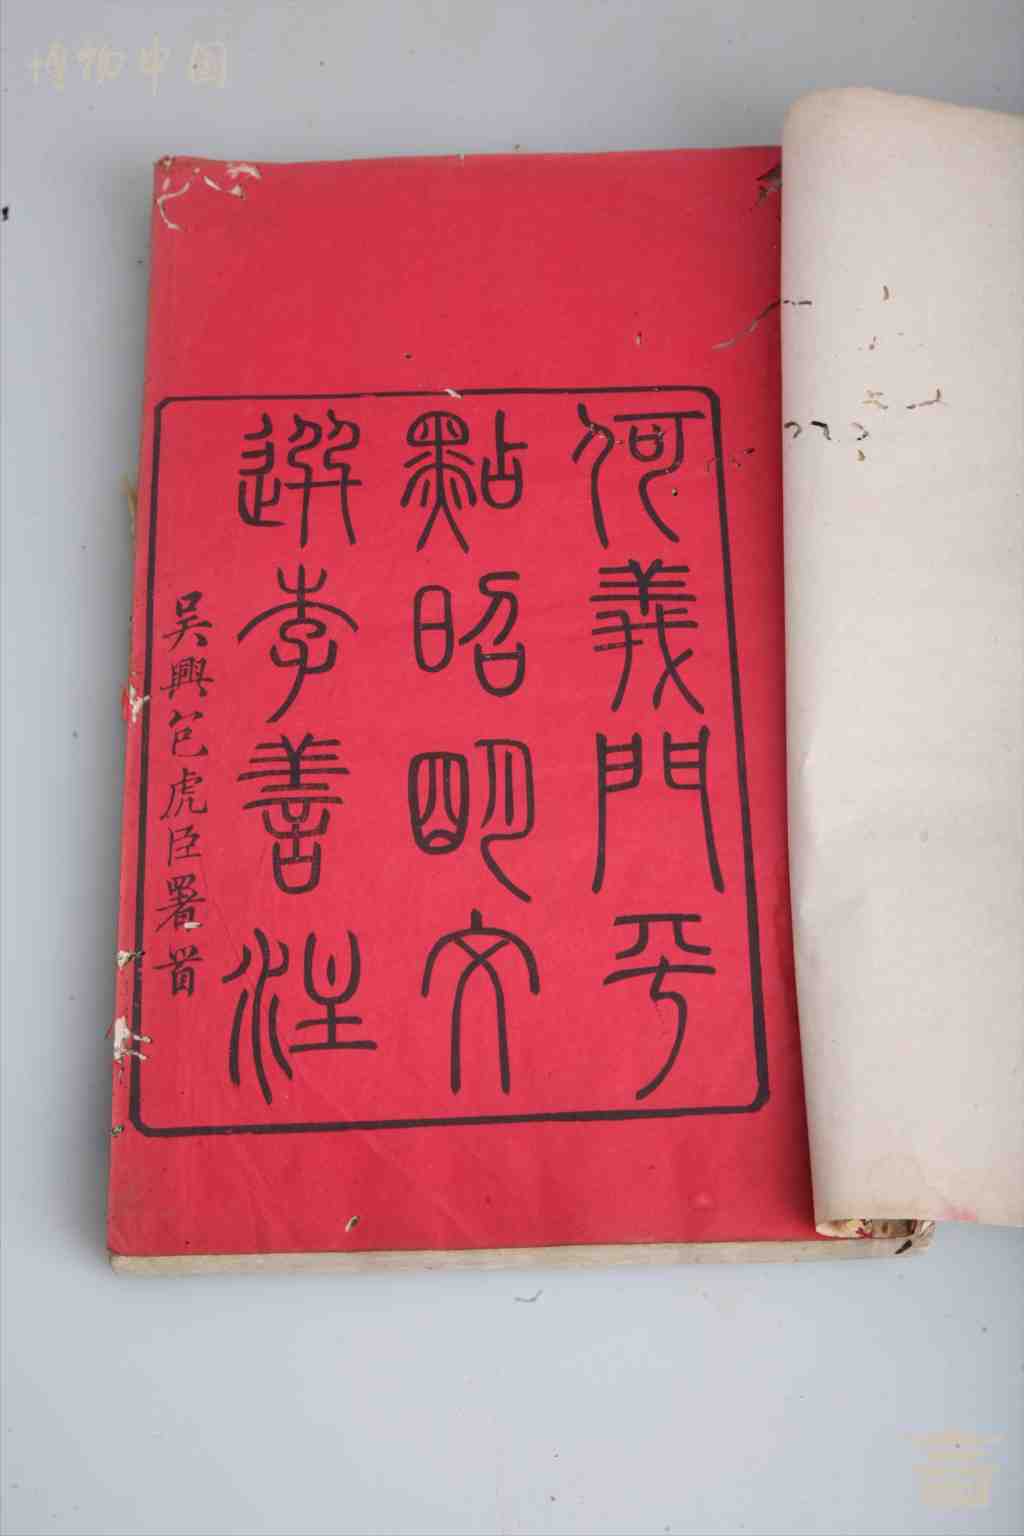 何義門平
點昭明文
選李善注
吴興包虎臣署首
博物中国